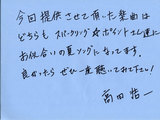 今回提供させて頂いた楽曲は
どちらもスパークリング☆ポイントさん達に
お似合いの夏ソングになってます。
良かったらぜひ一度聴いてみて下さい!
高田浩一